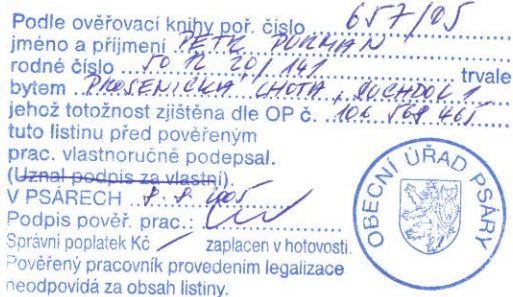 Podle ověřovací knihy poř. číslo 657/05
jméno a příjmení PETR
rodné číslo 50 12 20/141 trvale
bytem PROSENICKÁ LHOTA, SUCHDOL 1
jehož totožnost zjištěna dle OP č. 102 568 465
tuto listinu před pověřeným
prac. vlastnoručně podepsal.
(Uznal podpis za vlastní).
V PSÁRECH 8. 8. 2005
Podpis pověř. prac.:
Správní poplatek Kč zaplacen v hotovosti.
Pověřený pracovník provedením legalizace
neodpovídá za obsah listiny.
OBECNÍ ÚŘAD PSÁRY